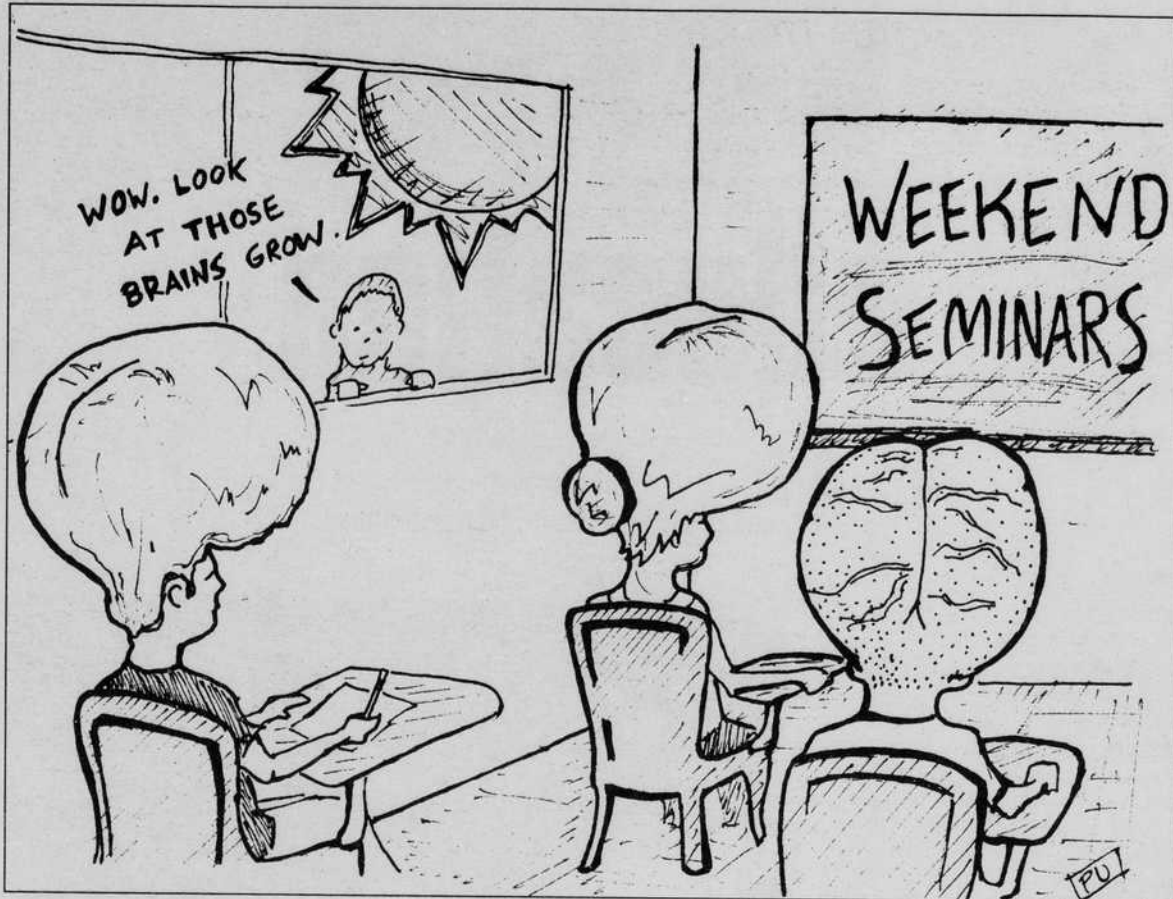 WOW. LOOK
AT THOSE
BRAINS GROW.
WEEKEND
SEMINARS
PU